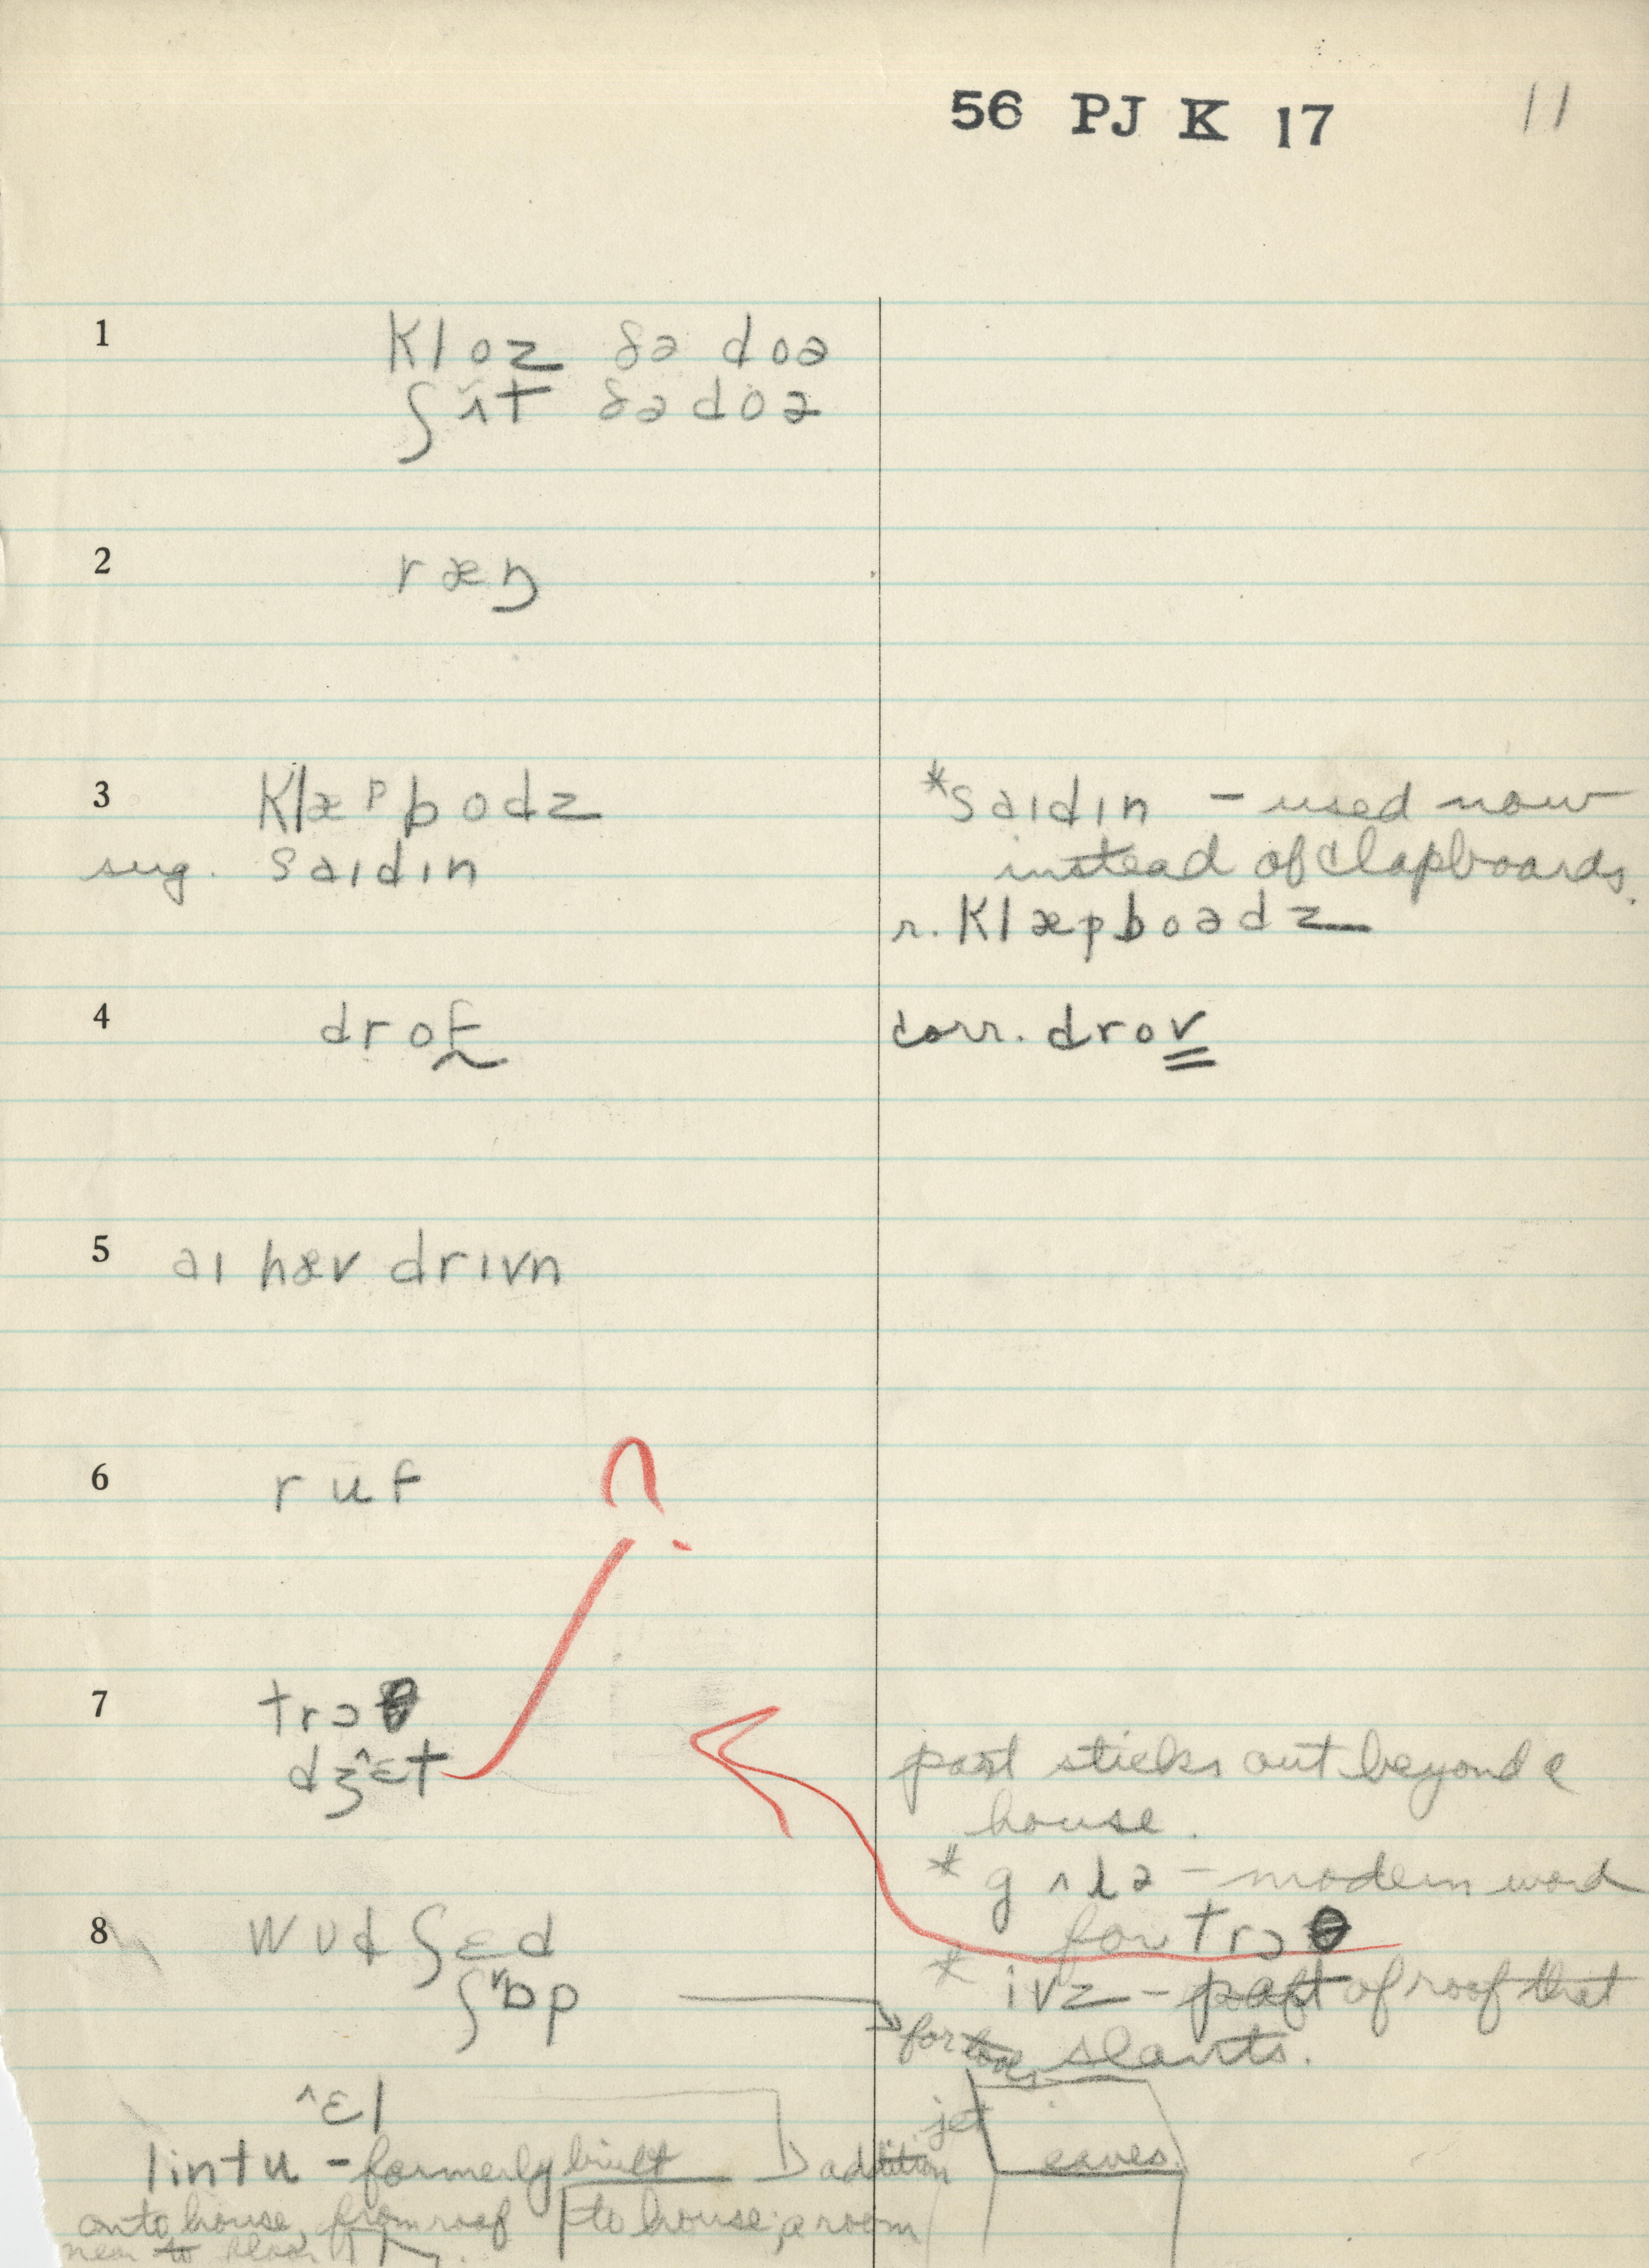 56 PJ K 17 11
1 Kloz ðə doə
ʃʌt ðə doə
2 ræŋ
3 Klæpbodz
sug. saɪdɪn
*saɪdɪn - used now
instead of clapboards.
r. Klæpboədz
4 drof
corr. drov
5 aɪ hæv drɪvn
6 ruf
?
7 trɔθ
dʒ^ɛt
part sticks out beyond
house.
* gʌtə - modern word
for trɔθ
* ivz - part of roof that
slants.
8 wud ʃɛd
ʃɒp
for tools
^ɛl
addition
lintu - formerly built
onto house, from roof to house; a room
near to
jet
eaves